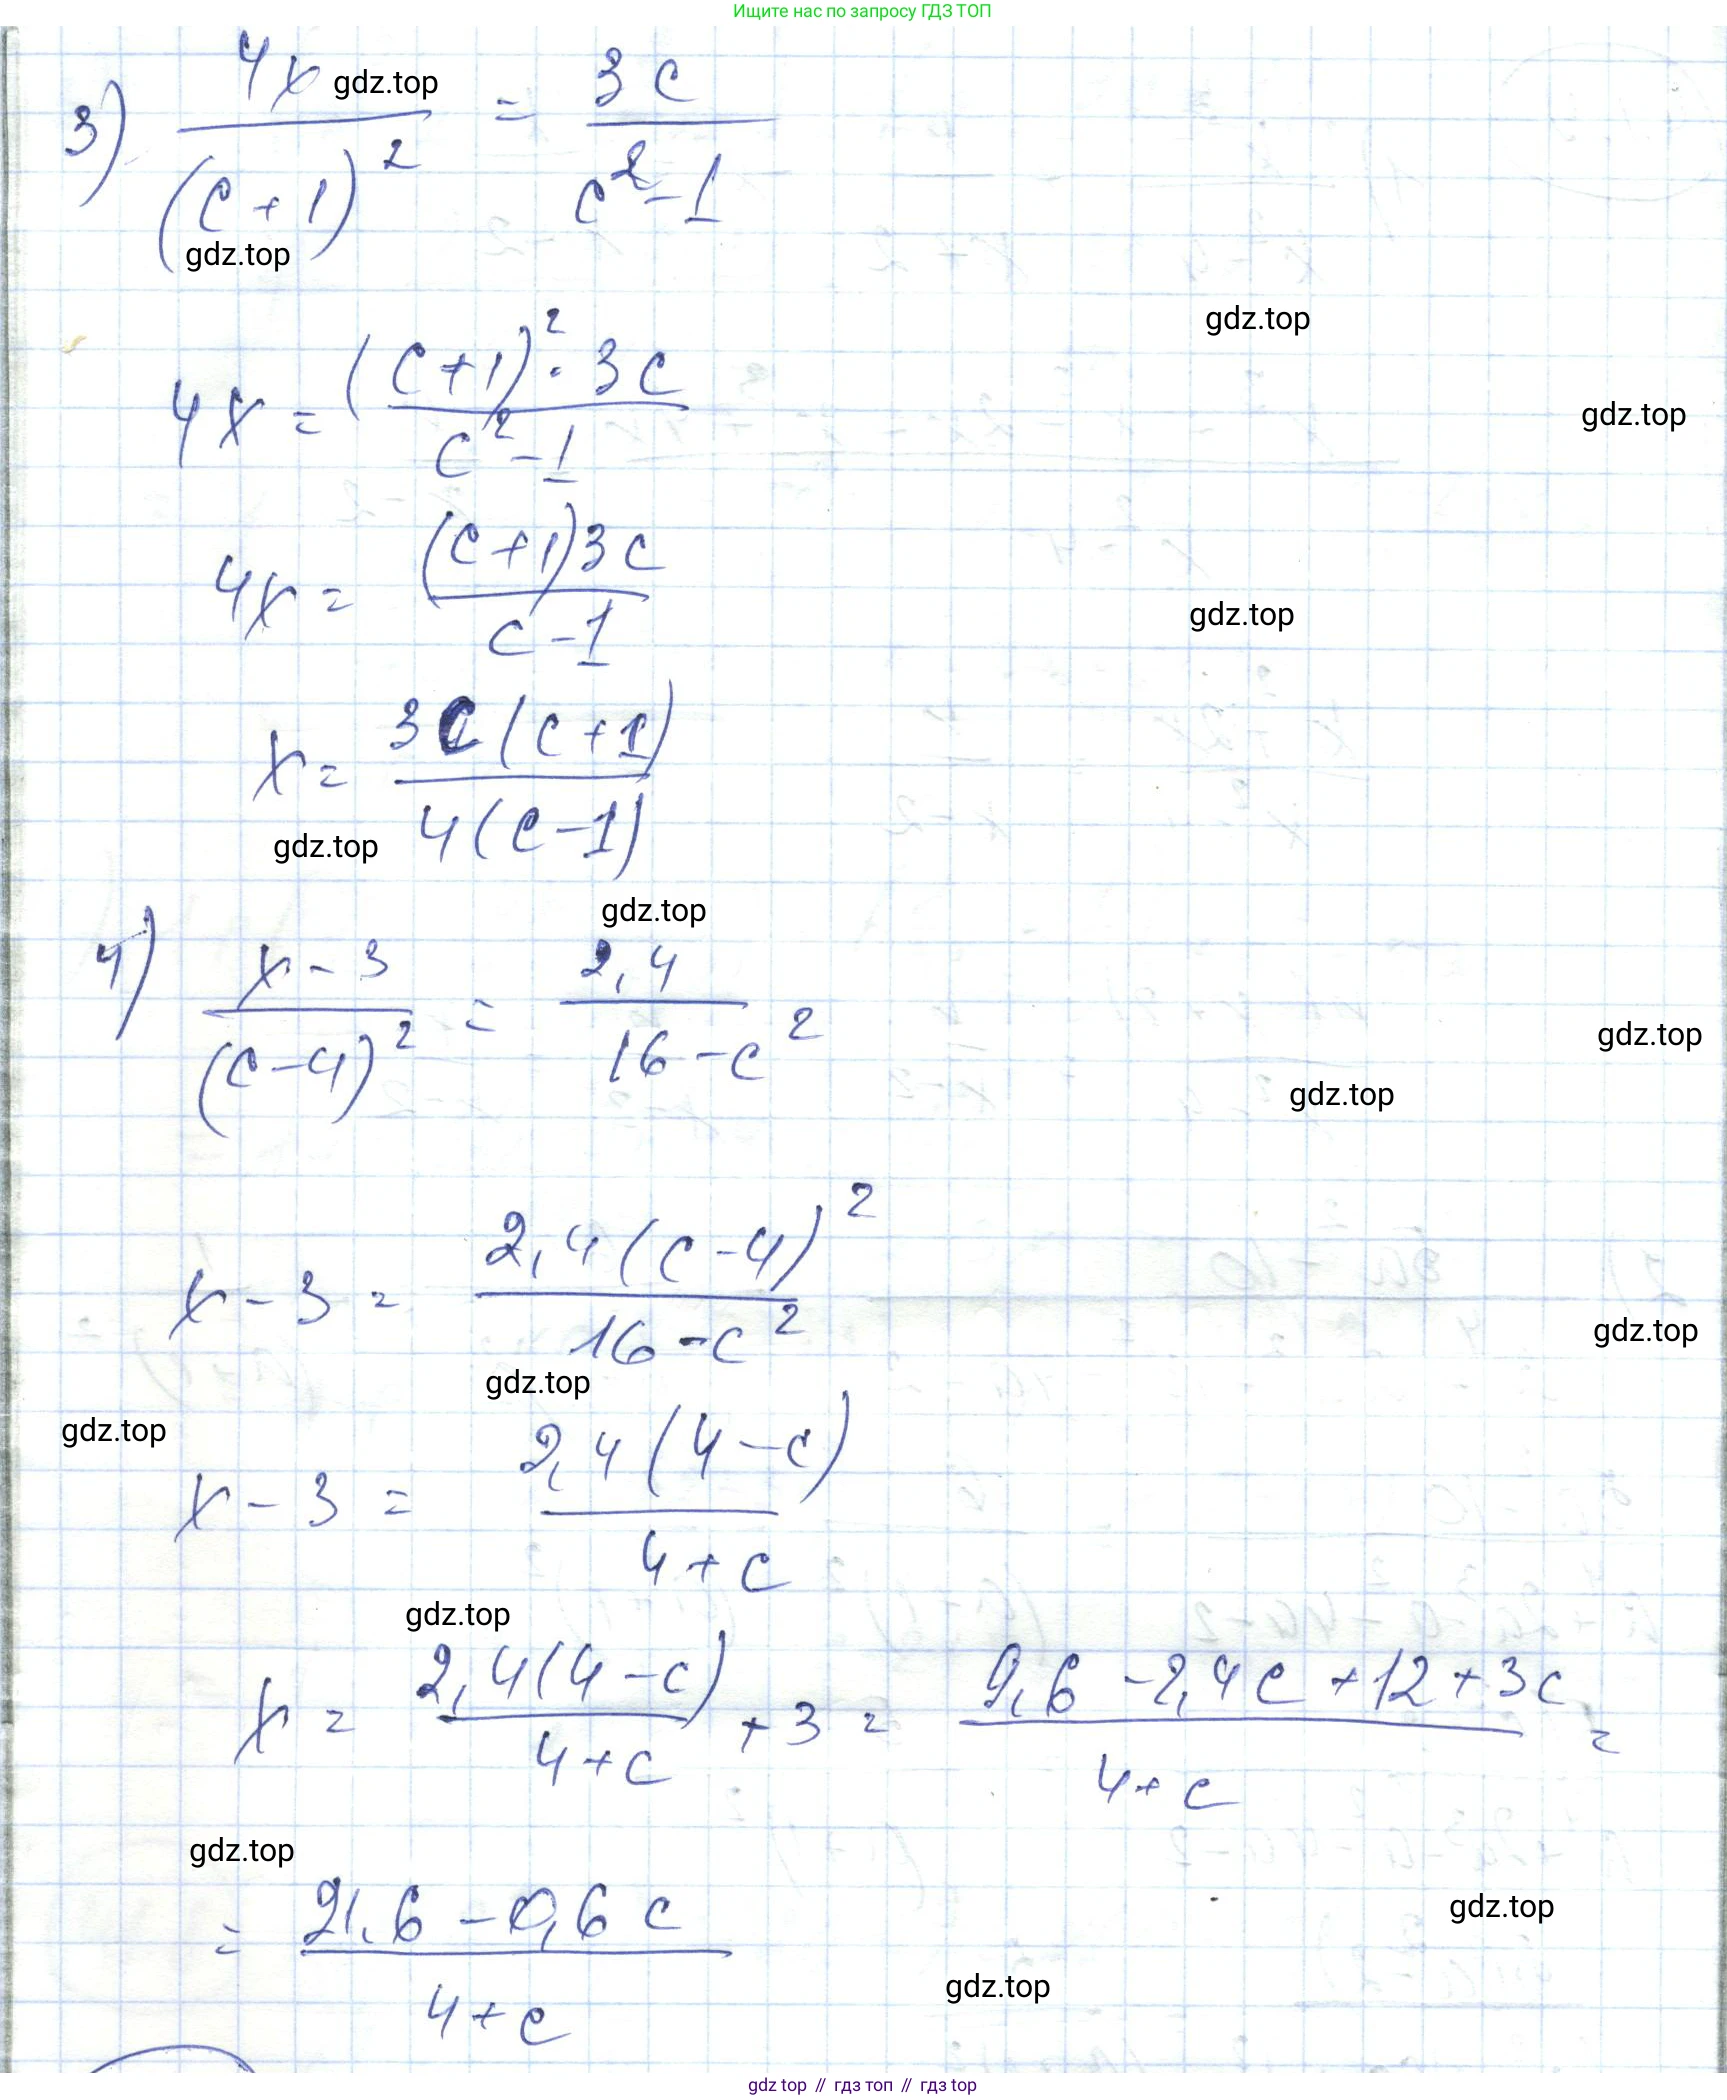 Ищите нас по запросу ГДЗ ТОП
3) 4x / (c+1)² = 3c / (c²-1)
gdz.top
gdz.top
gdz.top
4x = (c+1)² · 3c / (c²-1)
gdz.top
4x = (c+1)3c / (c-1)
gdz.top
x = 3c(c+1) / 4(c-1)
gdz.top
gdz.top
4) x-3 / (c-4)² = 2,4 / (16-c²)
gdz.top
gdz.top
x-3 = 2,4(c-4)² / (16-c²)
gdz.top
gdz.top
gdz.top
x-3 = 2,4(4-c) / (4+c)
gdz.top
x = 2,4(4-c) / (4+c) + 3 = 9,6-2,4c+12+3c / (4+c) =
gdz.top
= 21,6-0,6c / (4+c)
gdz.top
gdz.top
gdz top // гдз топ // гдз top